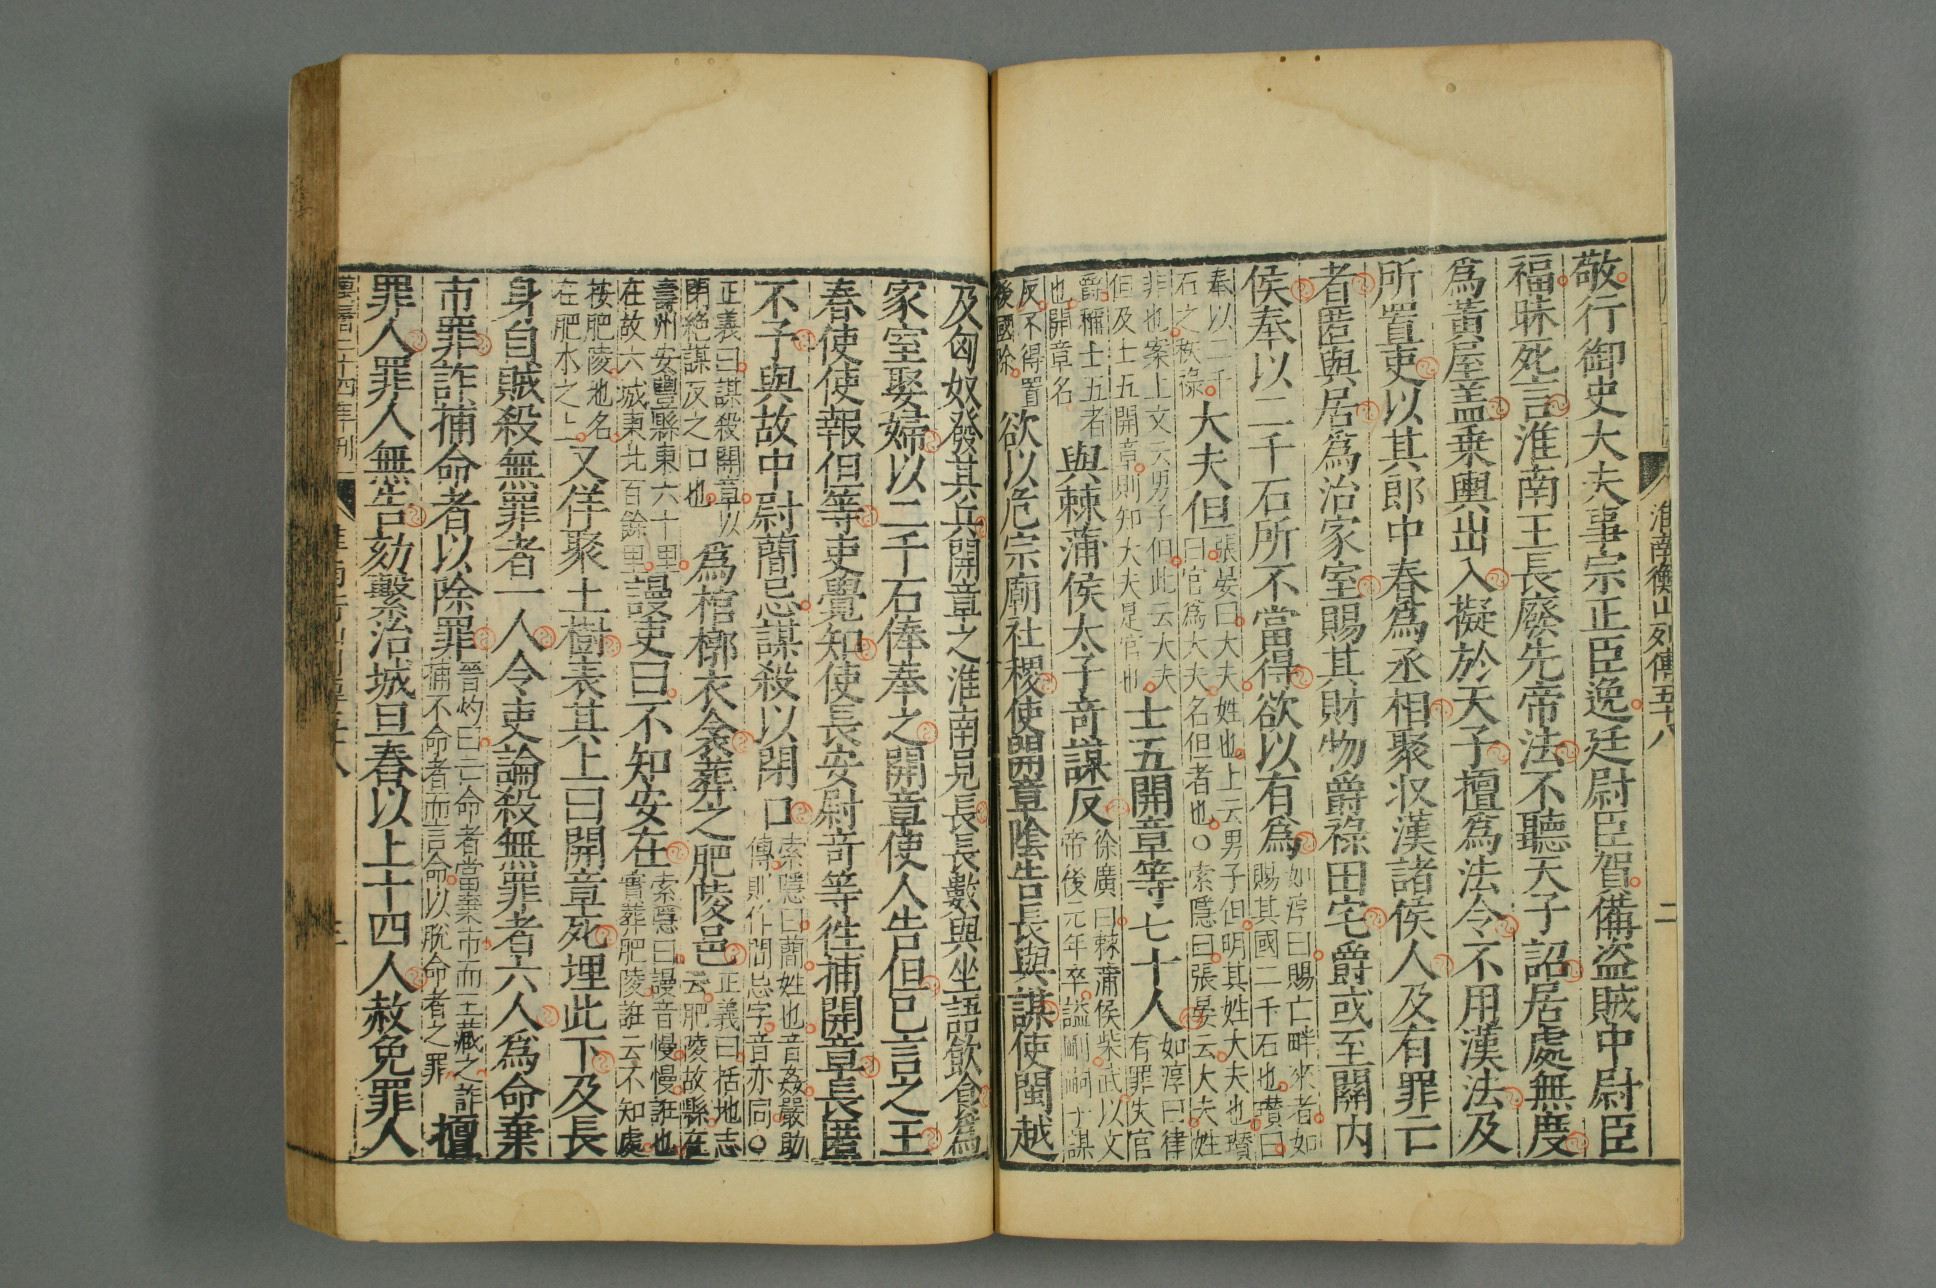 淮南衡山列傳五十八 二
敬行御史大夫事宗正臣逸廷尉臣賀備盜賊中尉臣
福昧死言淮南王長廢先帝法不聽天子詔居處無度
爲黃屋蓋乗輿出入擬於天子擅爲法令不用漢法及
所置吏以其郎中春爲丞相聚収漢諸侯人及有罪亡
者匿與居爲治家室賜其財物爵祿田宅爵或至關內
侯奉以二千石所不當得欲以有爲
如淳曰賜亡畔來者如
賜其國二千石也瓚曰
奉以二千
石之秩祿
大夫但
張晏曰大夫姓也上云男子但明其姓大夫也瓚
曰官爲大夫名但者也○索隱曰張晏云大夫姓
非也案上文云男子但此云大夫
但及士五開章則知大夫是官也
士五開章等七十人
如淳曰律
有罪失官
爵稱士五者
也開章名
與棘蒲侯太子奇謀反
徐廣曰棘蒲侯柴武以文
帝後元年卒謚剛嗣子謀
反不得置
後國除
欲以危宗廟社稷使開章陰告長與謀使閩越
及匈奴發其兵開章之淮南見長長數與坐語飲食爲
家室娶婦以二千石俸奉之開章使人告但已言之王
春使使報但等吏覺知使長安尉奇等徃捕開章長匿
不予與故中尉蕑忌謀殺以閉口
索隱曰蕑姓也音姦嚴助
傳則作間忌字音亦同○
正義曰謀殺開章以
閉絕謀反之口也
爲棺槨衣衾葬之肥陵邑
正義曰括地志
云肥陵故縣在
壽州安豐縣東六十里
在故六城東北百餘里
謾吏曰不知安在
索隱曰謾音慢慢誑也
實葬肥陵誑云不知處
按肥陵地名
在肥水之上
又佯聚土樹表其上曰開章死埋此下及長
身自賊殺無罪者一人令吏論殺無罪者六人爲命棄
市罪詐捕命者以除罪
晉灼曰亡命者當棄市而王藏之詐
捕不命者而言命以脫命者之罪
擅
罪人罪人無告劾繫治城旦舂以上十四人赦免罪人
萬曆二十四年刊